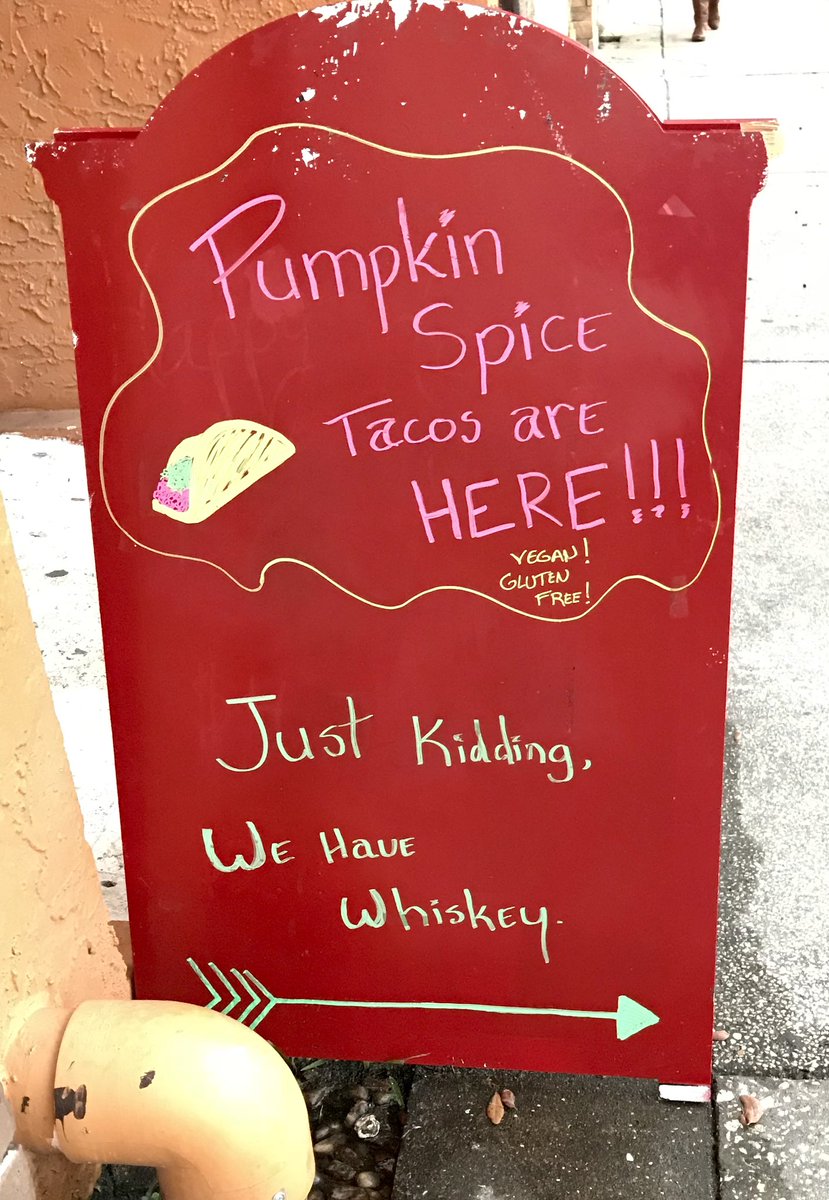 Pumpkin
Spice
Tacos are
HERE!!!
VEGAN!
GLUTEN
FREE!
Just Kidding,
We Have
Whiskey.